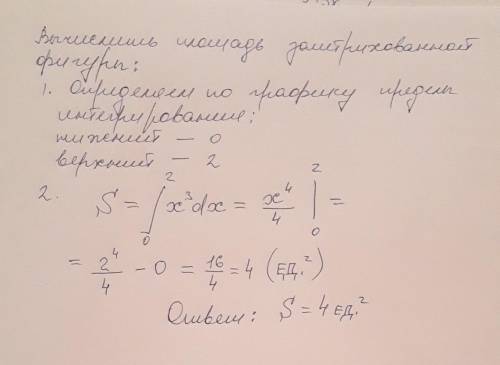 Вычислить площадь заштрихованной
фигуры:
1. Определяем по графику пределы
интегрирования:
нижний — 0
верхний — 2
2. S = ∫₀² x³dx = x⁴/4 |₀² =
= 2⁴/4 − 0 = 16/4 = 4 (ЕД.²)
Ответ: S = 4 ЕД.²